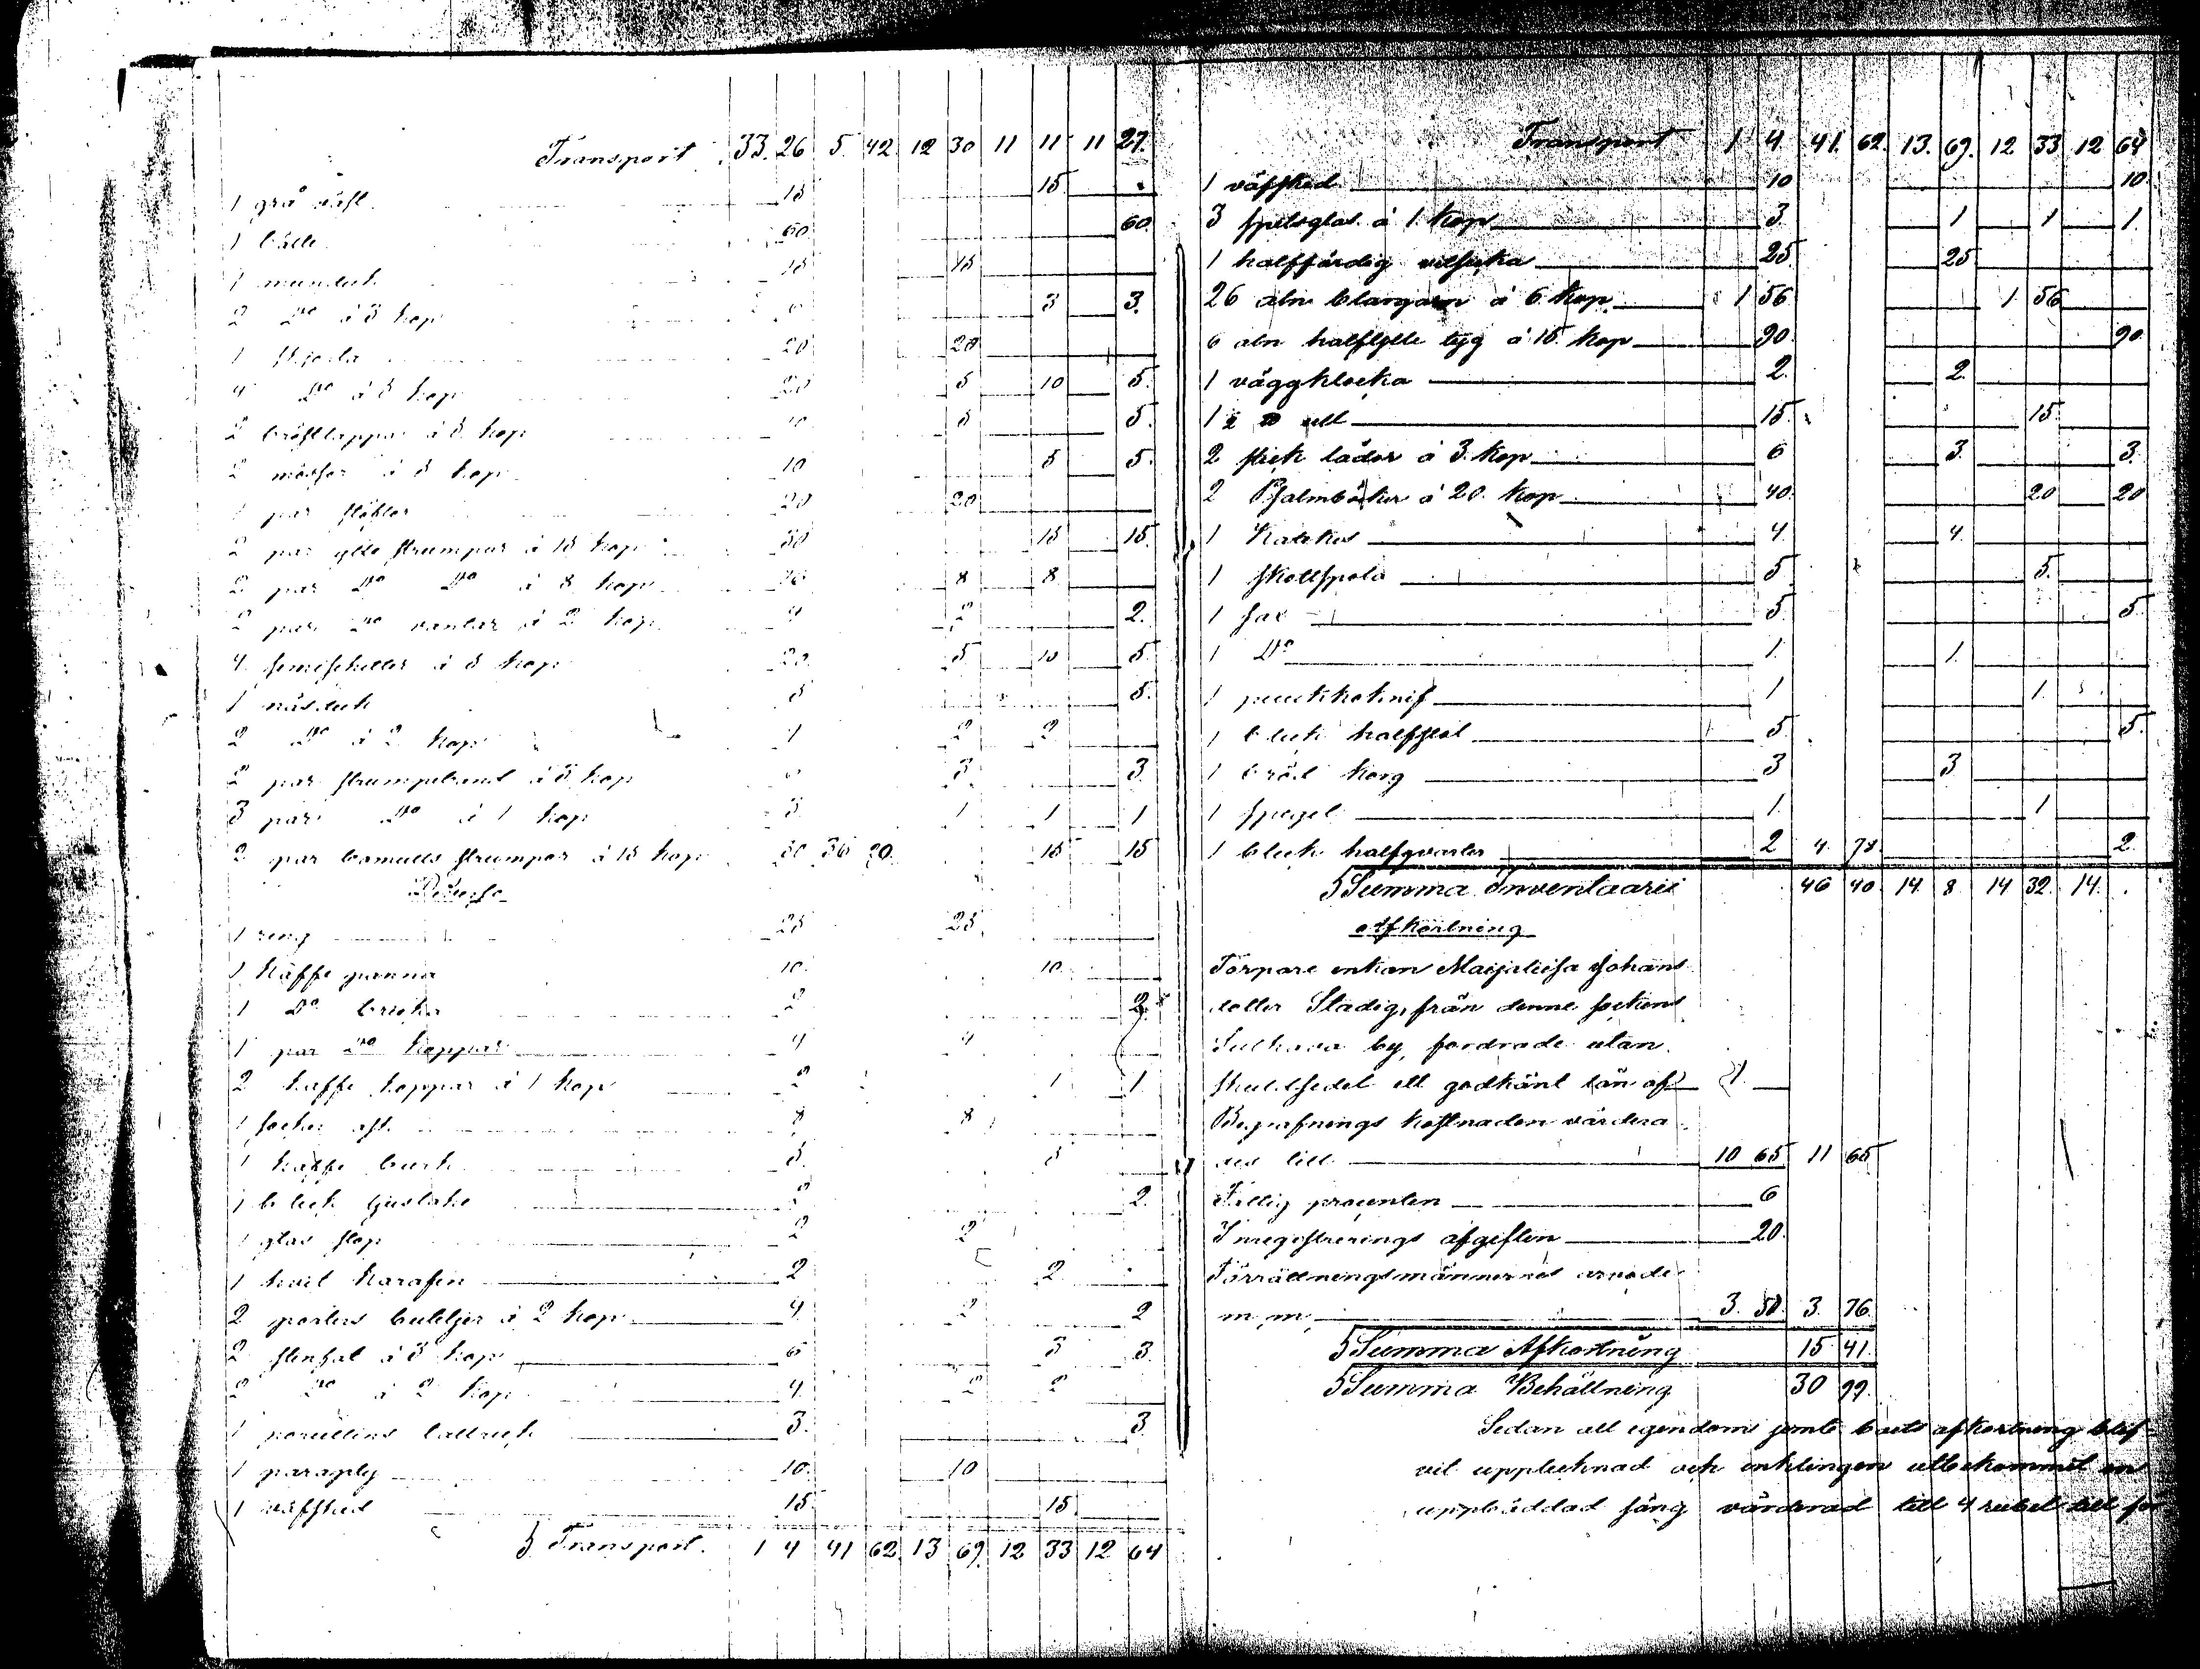 Transport 33. 26 5. 42 12 30 11 11 11 27.
1 grå väst 15 15
1 bälte 60 60.
1 munduk 15 15
2 Do à 3 kop 6 3 3.
1 skjorta 20 20
4 Do à 5 kop 20 5 10 5.
2 bröstlappar à 5 kop 10 5 5.
2 mössor à 5 kop 10 5 5.
1 par stöflor 20 20
2 par ylle strumpor à 15 kop 30 15 15.
2 par Do Do à 8 kop 16 8 8
2 par Do vantar à 2 kop 4 2 2.
4 à 5 kop 20 5 10 5
1 näsduk 5 5.
2 Do à 2 kop 4 2 2
2 par strumpeband à 3 kop 6 3 3.
3 par Do à 1 kop 3 1 1 1
2 par bomulls strumpor à 15 kop 30 36 20. 15 15
Diverse
1 25 25
1 kaffe panna 10. 10.
1 Do bricka 2 2.
1 par Do koppar 4 4
2 kaffe koppar à 1 kop 2 1 1.
1 socker ask 8 8
1 kaffe burk 5. 5
1 bleck ljustake 2 2.
1 glas stop 2 2
1 hvit karafin 2 2
2 porters buteljer à 2 kop 4 2 2
2 stenfat à 3 kop 6 3 3.
2 Do à 2 kop 4. 2 2
1 porcellins talrick 3. 3
1 paraply 10. 10
1 väfsked 15. 15.
S Transport. 1 4 41 62 13 69 12 33 12 64
Transport 1 4 41. 62. 13. 69. 12 33 12 64
1 väfsked 10 10.
3 spetsglas à 1 kop 3. 1 1 1.
1 halffärdig 25 25
26 aln blangarn à 6 kop. 1 56 1 56
6 aln halfylle tyg à 15. kop 90. 90.
1 väggklocka 2. 2.
1 ull 15. 15.
2 läder à 3. kop 6 3. 3.
2 Psalmböcker à 20. kop 40. 20 20
1 Katekes 4. 4.
1 5 5.
1 sax 5. 5.
1 Do 1. 1.
1 1 1.
1 bleck halfstol 5 5.
1 bröd korg 3 3
1 spegel 1. 1
1 bleck halfqvarter 2 4. 78 2.
S Summa Inventaarii 46 40 14 8 14 32. 14.
Afkortning
Torpare enkan Maijaliisa Johans
dotter Stadig, från denne sockens
Sulkava by, fordrade utan
skuldsedel ett godkänt lån af 1.
Begrafnings kostnaden värdera
des till 10 65 11 65
Fattig procenten 6
Inregistrerings afgiften 20.
Förrättningsmännernes arvode
m, m, 3. 50. 3. 76.
S Summa Afkortning 15 41.
S Summa Behållning 30 99.
Sedan all egendom jemte boets afkortning blif-
vit upptecknad och enklingen utbekommit en
uppbäddad säng värderad till 4 rubel till